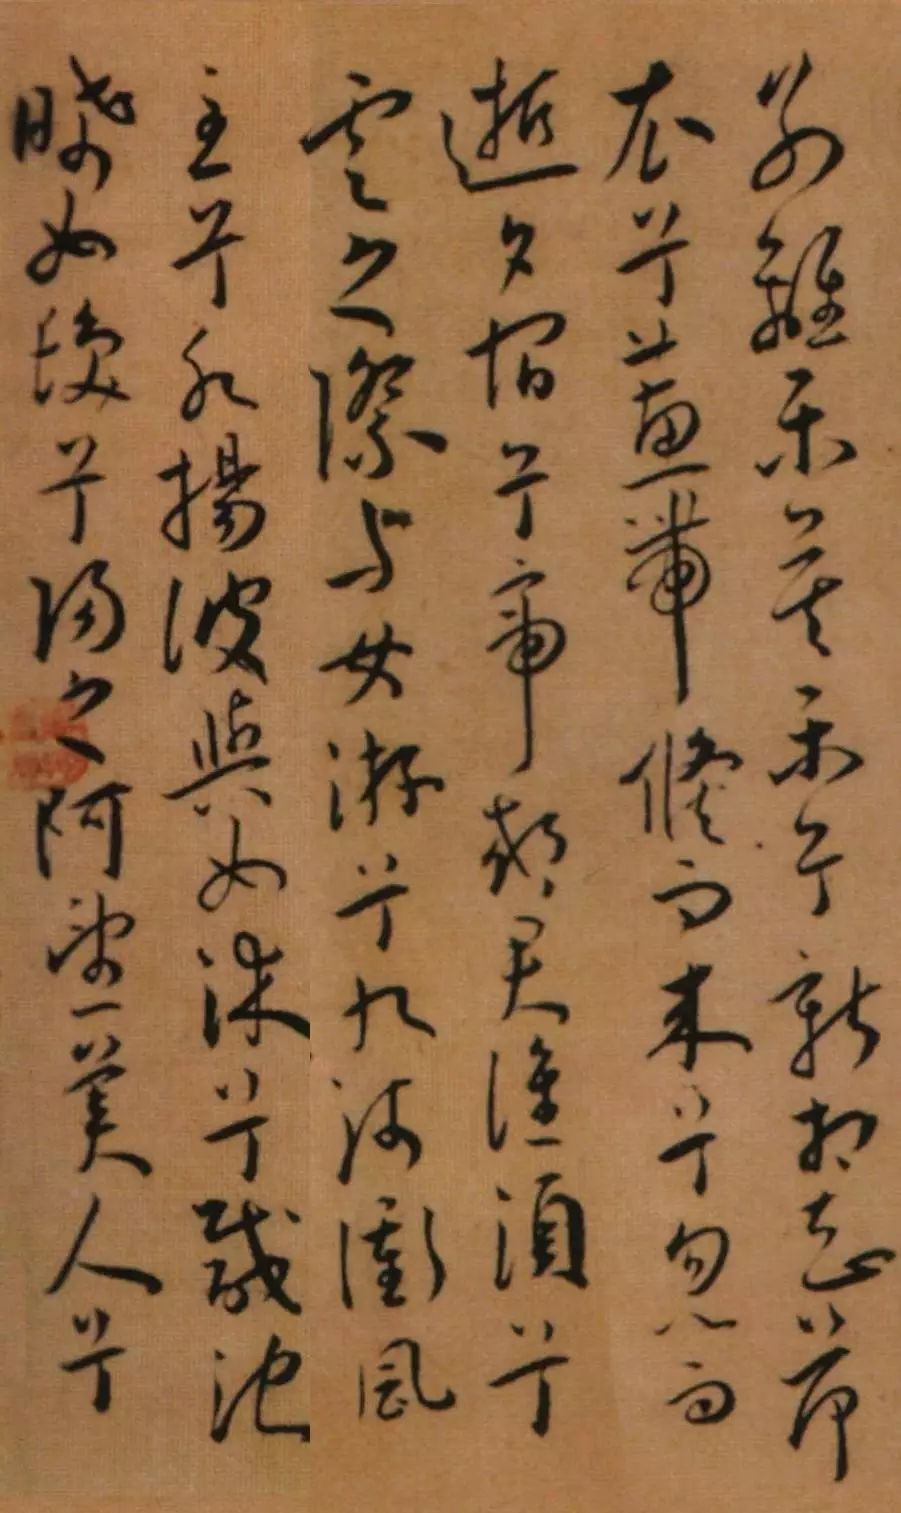 别離樂莫樂兮新相知荷
衣兮蕙帶儵而來兮忽而
逝夕宿兮帝郊君誰須兮
雲之際与女游兮九河衝風
至兮水揚波與女沐兮咸池
晞女髮兮陽之阿望美人兮